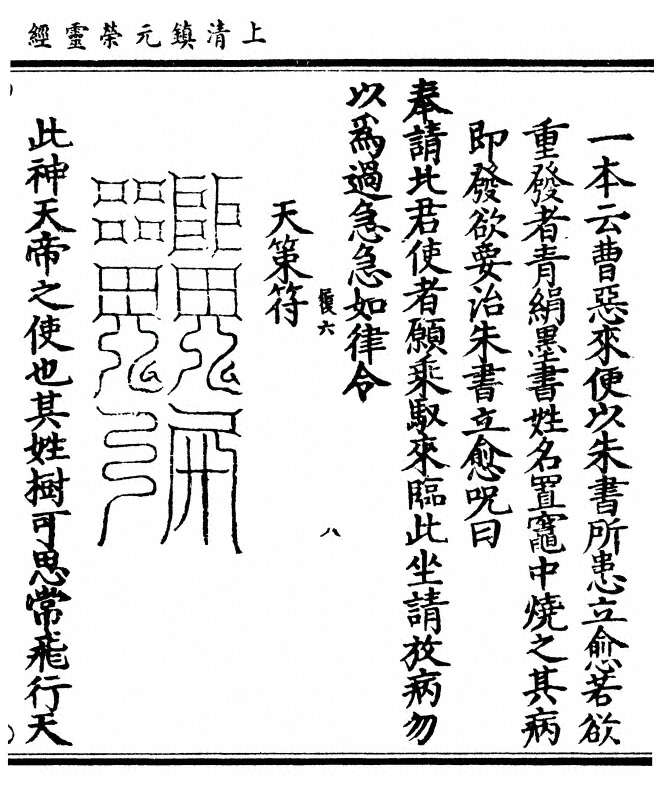 上清鎮元榮靈經
一本云曹惡來便以朱書所患立愈若欲
重發者青絹墨書姓名置竈中燒之其病
即發欲要治朱書立愈呪曰
奉請此君使者願乘馭來臨此坐請放病勿
以為過急急如律令
復六
八
天策符
此神天帝之使也其姓樹可思常飛行天